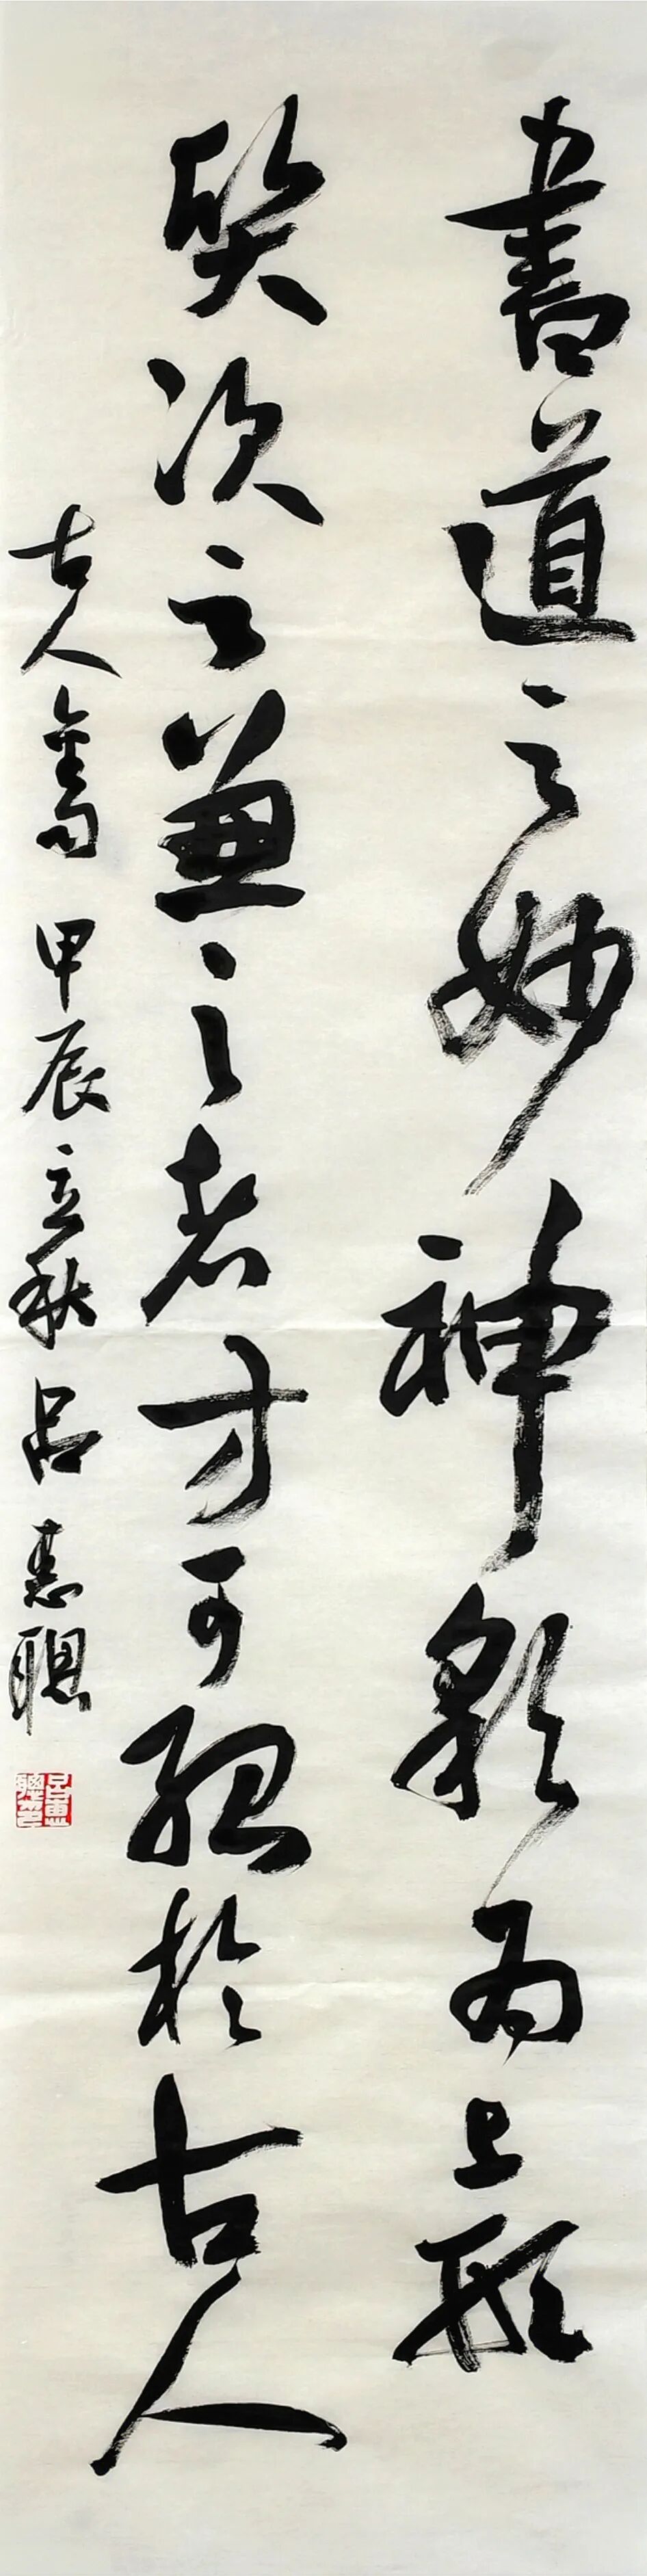 書道之妙神彩為上形
質次之兼之者方可紹於古人
古人句 甲辰立秋 呂惠聰